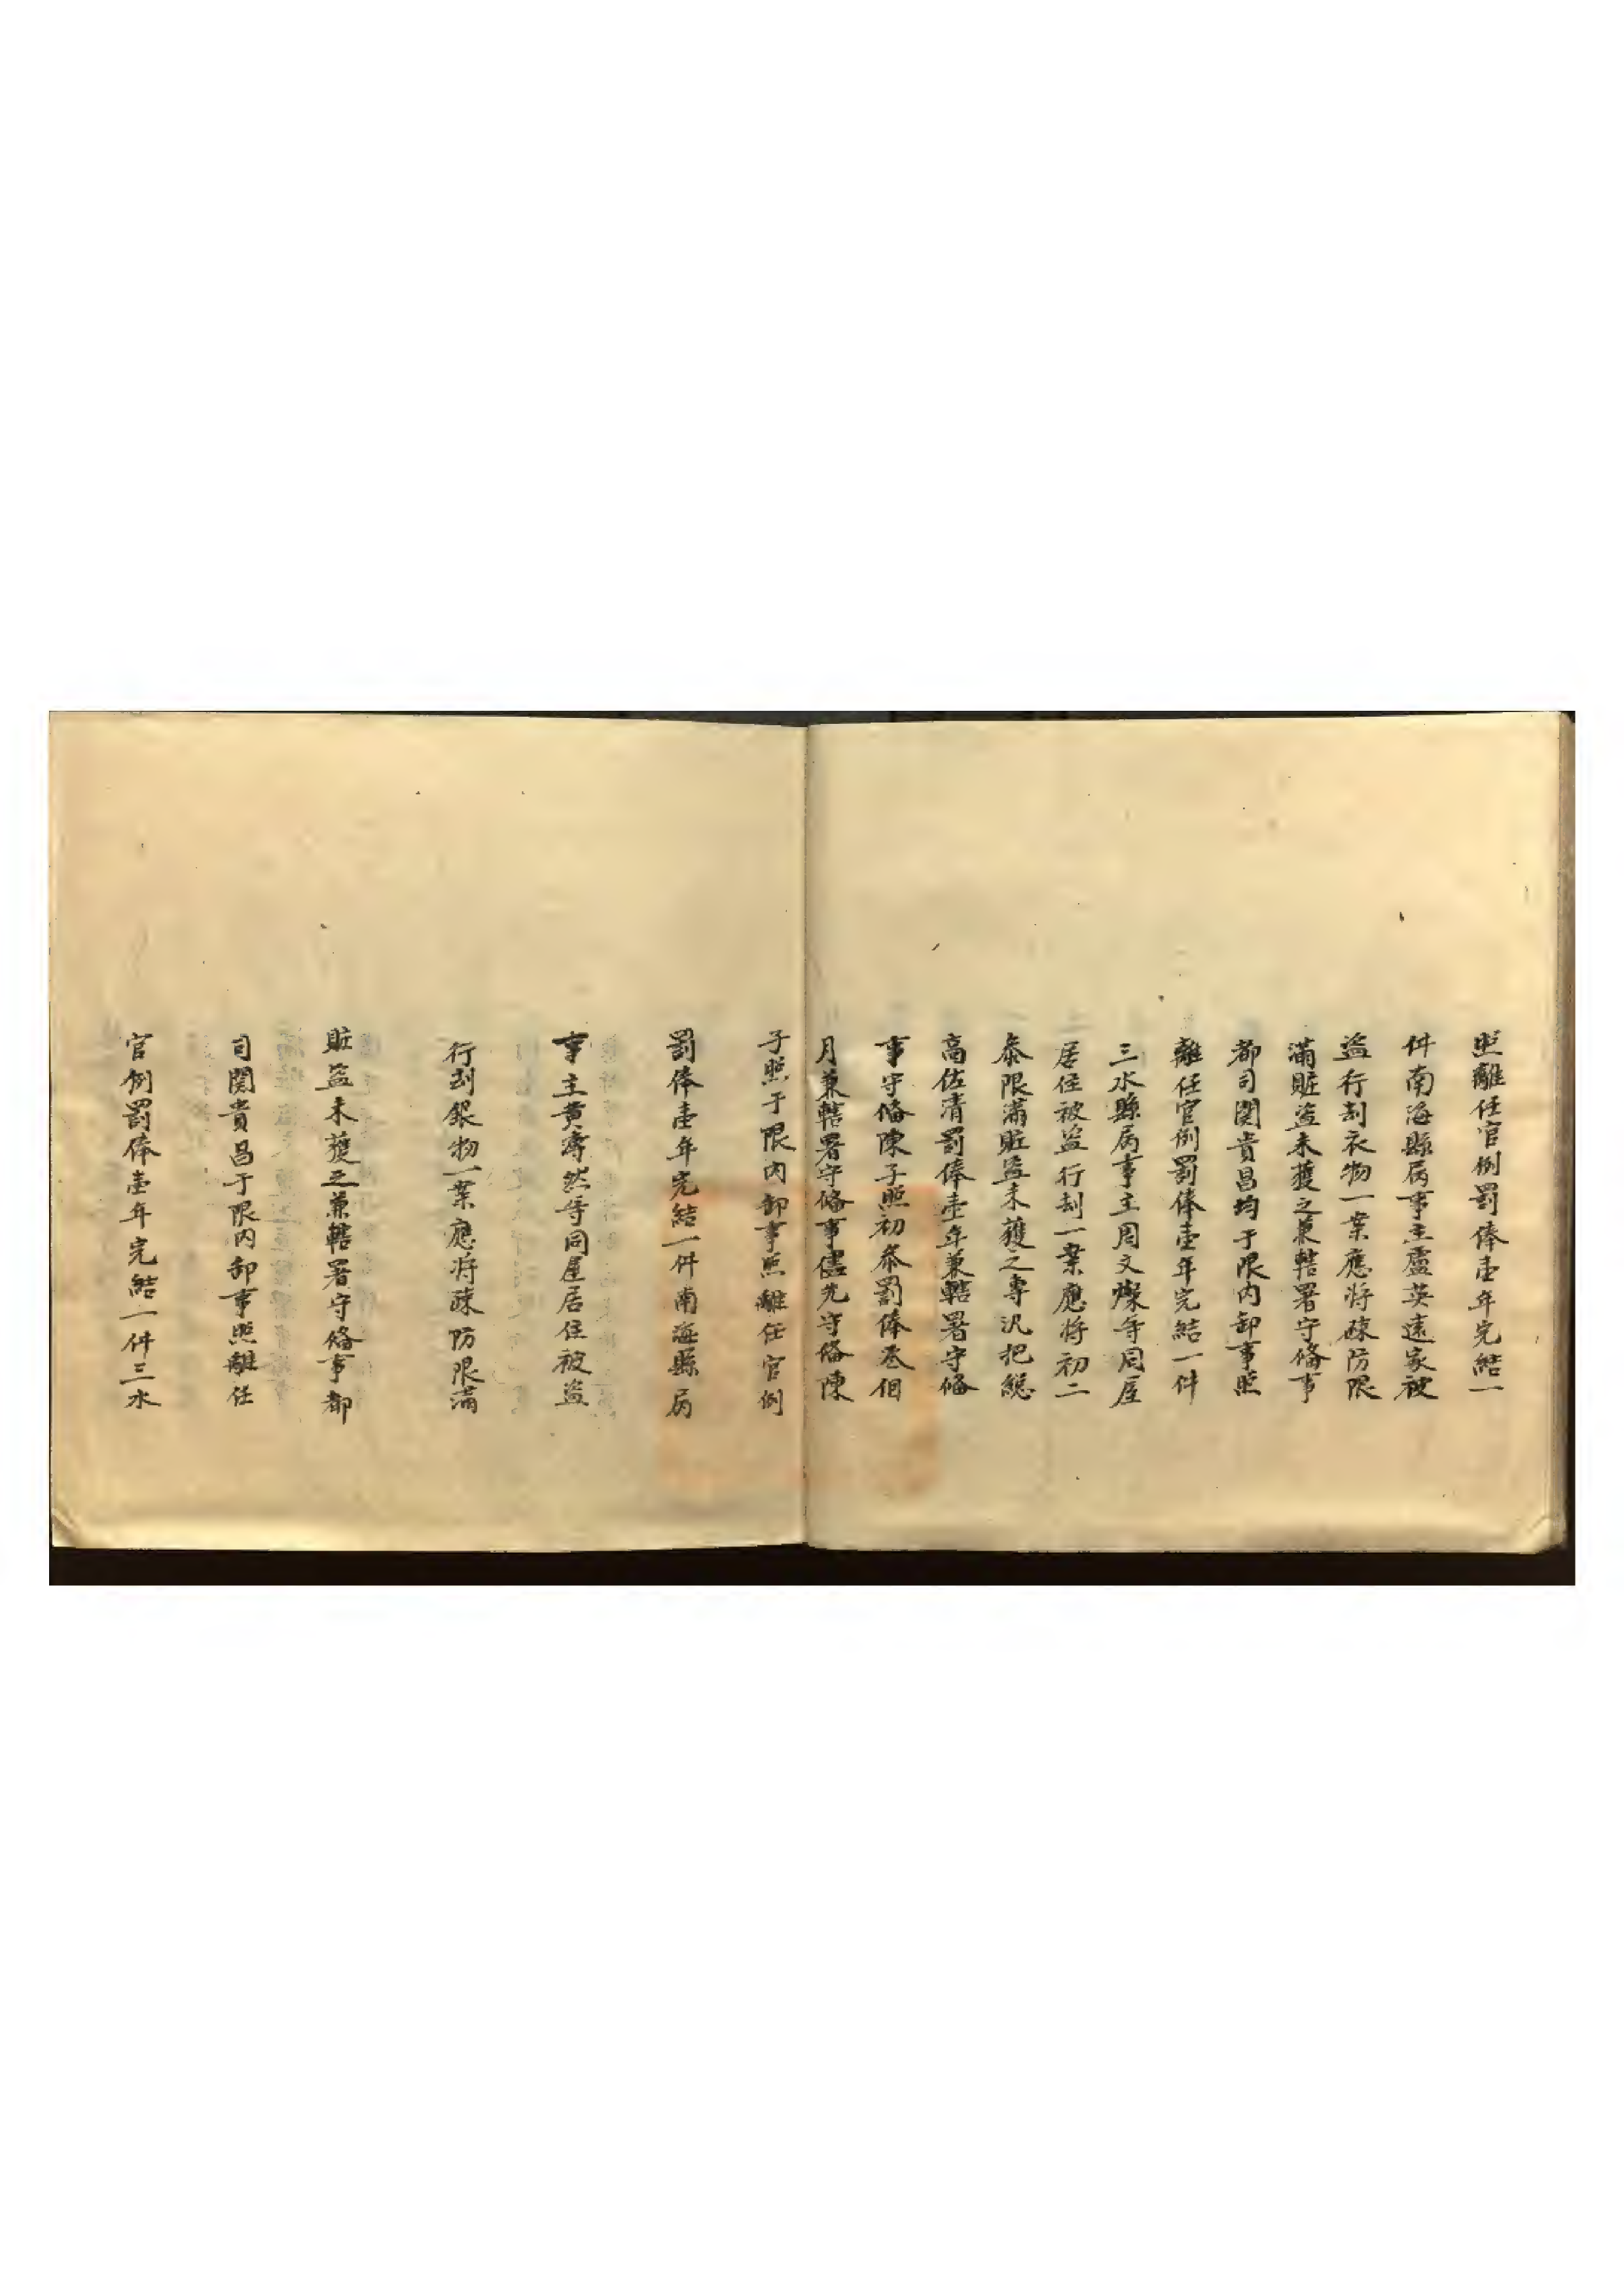 照離任官例罰俸壹年完結一
件南海縣屬事主盧英遠家被
盜行刦衣物一案應將疎防限
滿賍盜未獲之兼轄署守俻事
都司関貴昌均于限内卸事照
離任官例罰俸壹年完結一件
三水縣屬事主周文燦等同屋
居住被盜行刦一案應將初二
叅限滿賍盜未獲之專汛把総
高佐清罰俸壹年兼轄署守俻
事守俻陳子照初叅罰俸叁個
月兼轄署守俻事儘先守俻陳
子照于限内卸事照離任官例
罰俸壹年完結一件南海縣屬
事主黄濤然等同屋居住被盜
行刦銀物一案應將疎防限滿
賍盜未獲之兼轄署守俻事都
司関貴昌于限内卸事照離任
官例罰俸壹年完結一件三水